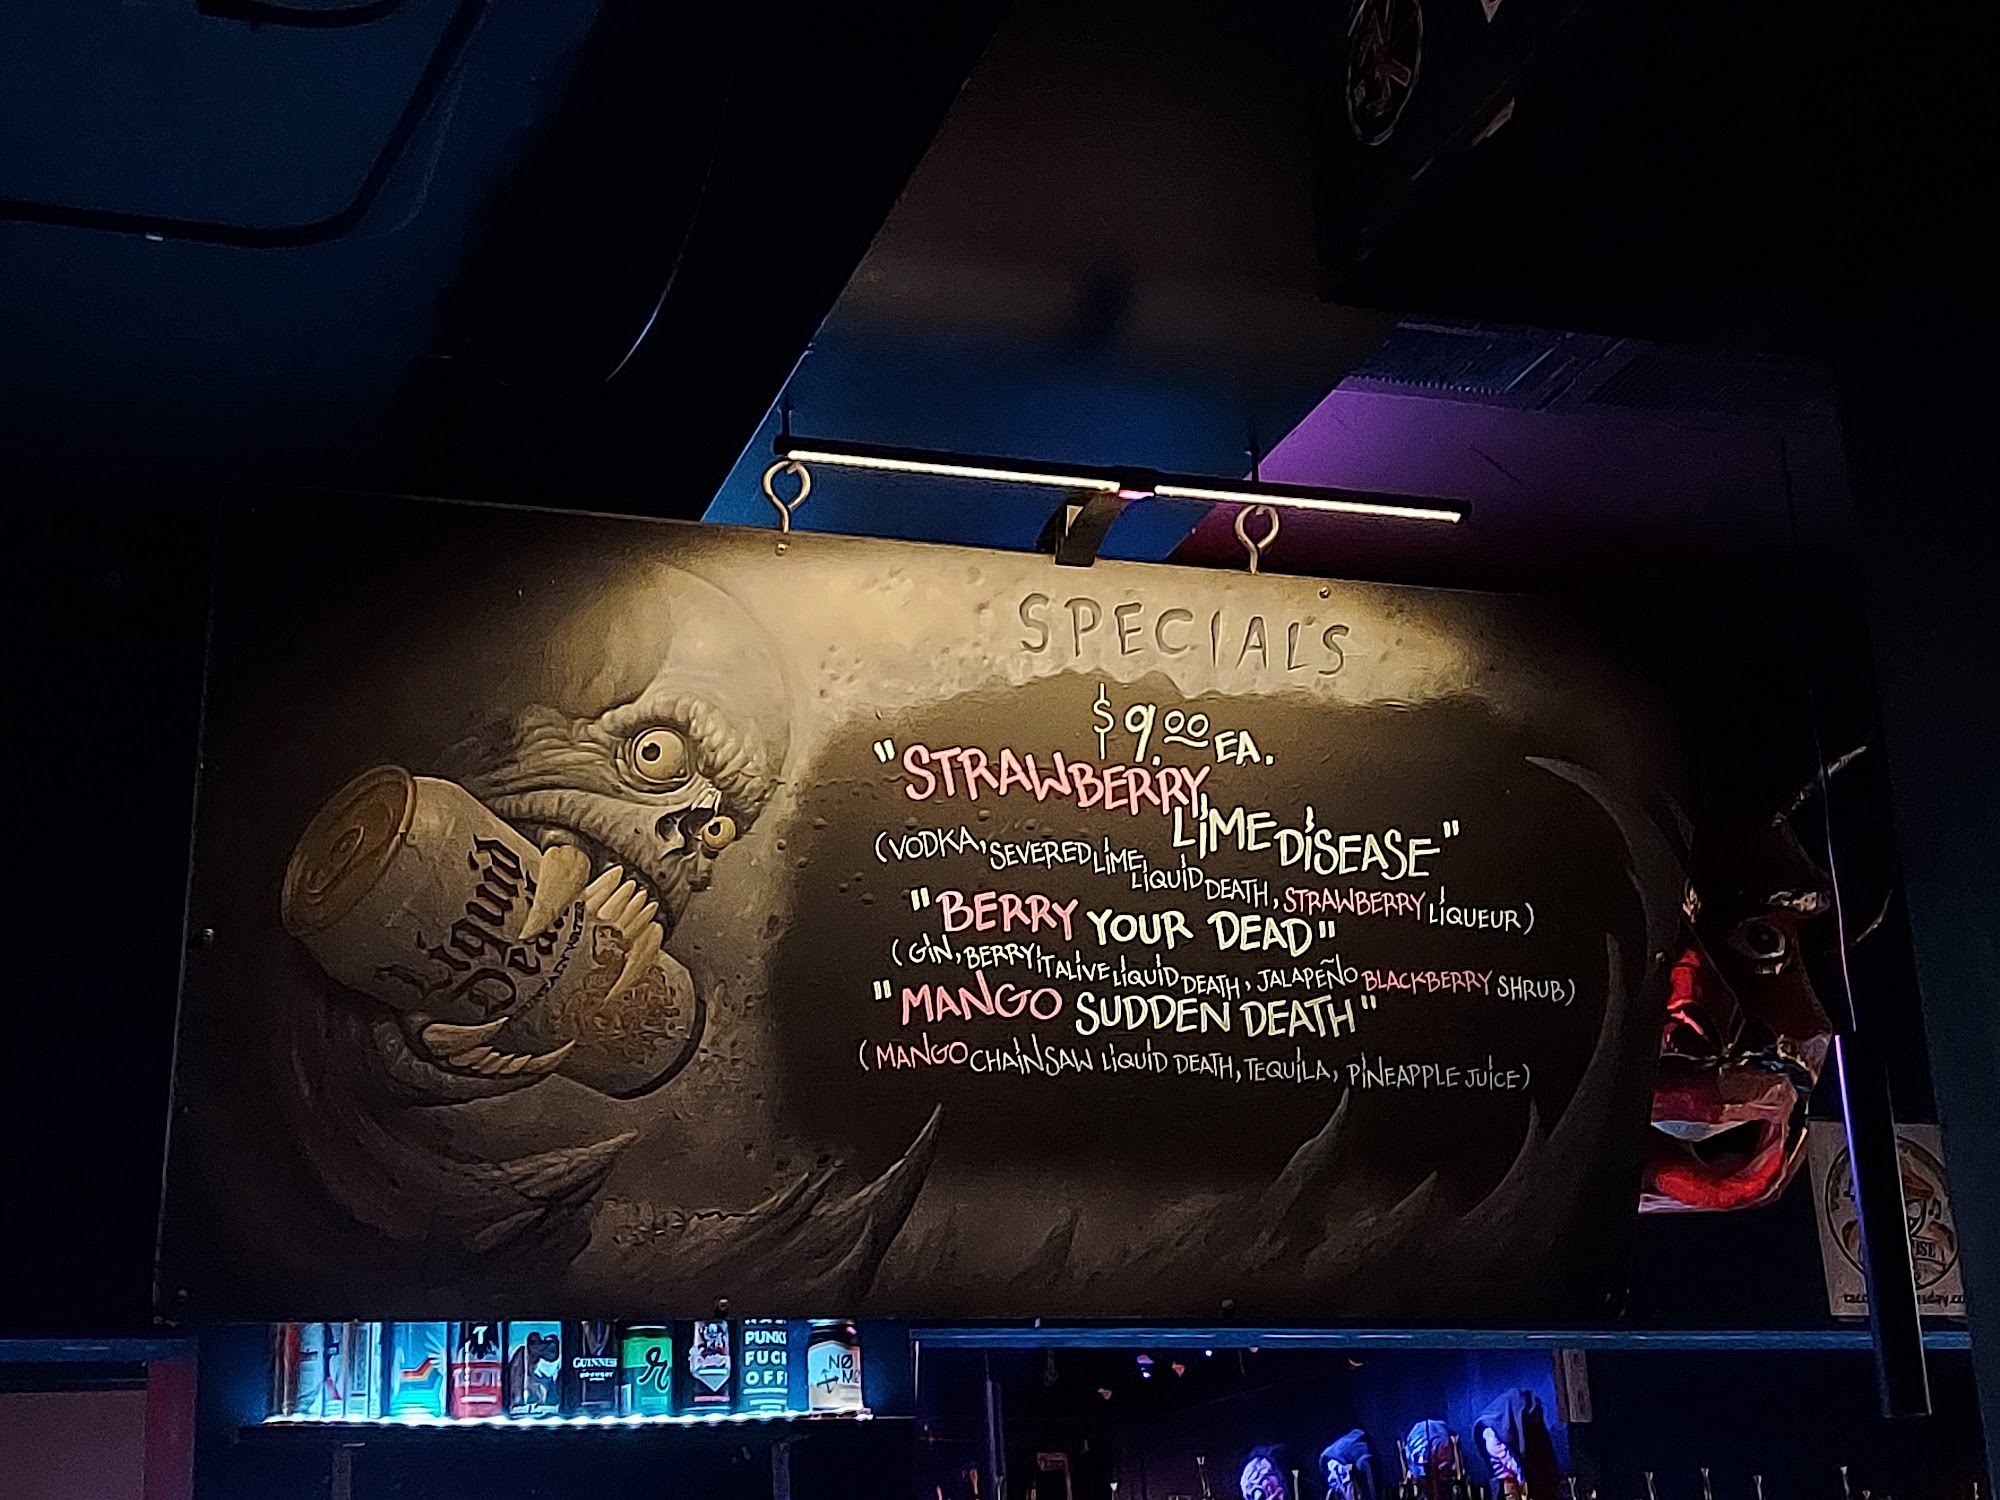 SPECIALS
$9.00 EA.
"STRAWBERRY
LIME DISEASE"
(VODKA, SEVERED LIME LIQUID DEATH, STRAWBERRY LIQUEUR)
"BERRY YOUR DEAD"
(GIN, BERRY IT ALIVE LIQUID DEATH, JALAPEÑO BLACKBERRY SHRUB)
"MANGO SUDDEN DEATH"
(MANGO CHAINSAW LIQUID DEATH, TEQUILA, PINEAPPLE JUICE)
Liquid
Death
GUINNESS
PUNKS
FUCK
OFF
NØ